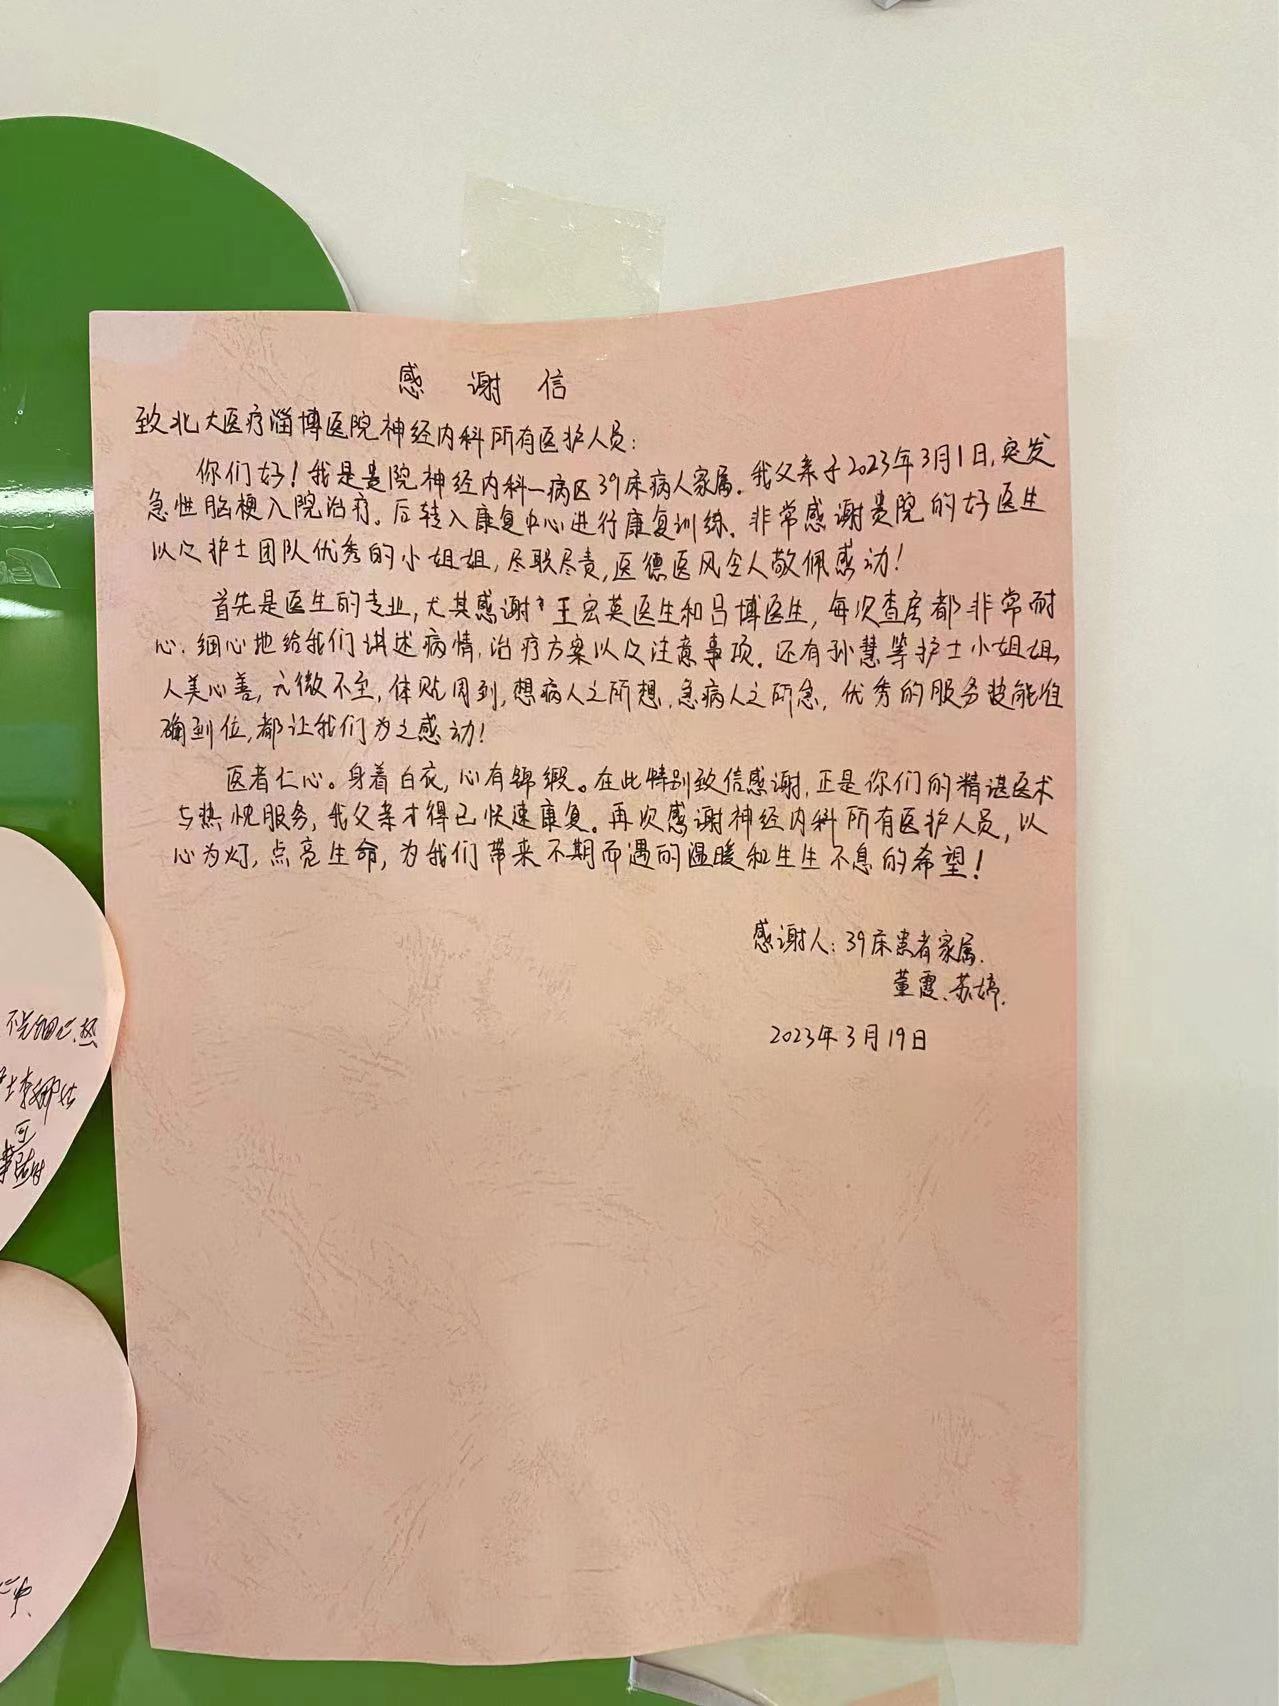 感谢信
致北大医疗淄博医院神经内科所有医护人员：
你们好！我是贵院神经内科一病区39床病人家属。我父亲于2023年3月1日，突发
急性脑梗入院治疗。后转入康复中心进行康复训练。非常感谢贵院的好医生
以及护士团队优秀的小姐姐，尽职尽责，医德医风令人敬佩感动！
首先是医生的专业，尤其感谢王宏英医生和吕博医生，每次查房都非常耐
心、细心地给我们讲述病情，治疗方案以及注意事项。还有孙慧等护士小姐姐，
人美心善，无微不至，体贴周到，想病人之所想，急病人之所急，优秀的服务技能准
确到位，都让我们为之感动！
医者仁心。身着白衣，心有锦缎。在此特别致信感谢，正是你们的精谌医术
与热忱服务，我父亲才得已快速康复。再次感谢神经内科所有医护人员，以
心为灯，点亮生命，为我们带来不期而遇的温暖和生生不息的希望！
感谢人：39床患者家属.
董霞、苏婷.
2023年3月19日